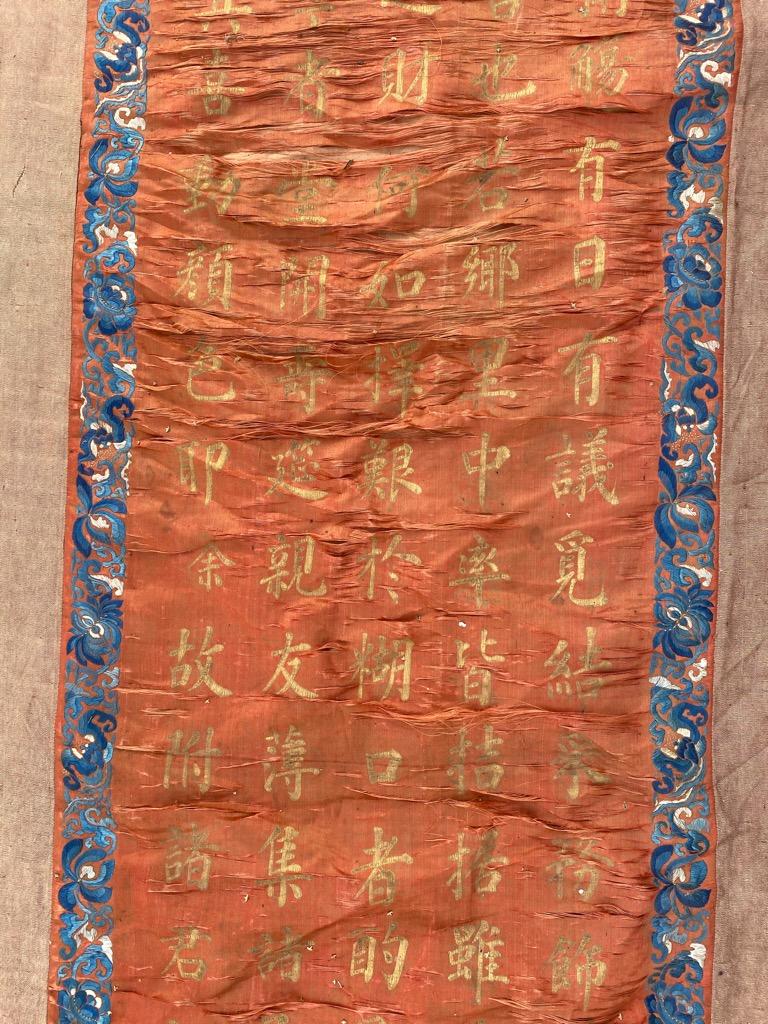 觴有日有議覓結采務飾
也若鄉里中率皆拮据雖
之財何如擇艱於糊口者酌
者壹開壽筵親友薄集詩
喜動顏色叩余故附諸君